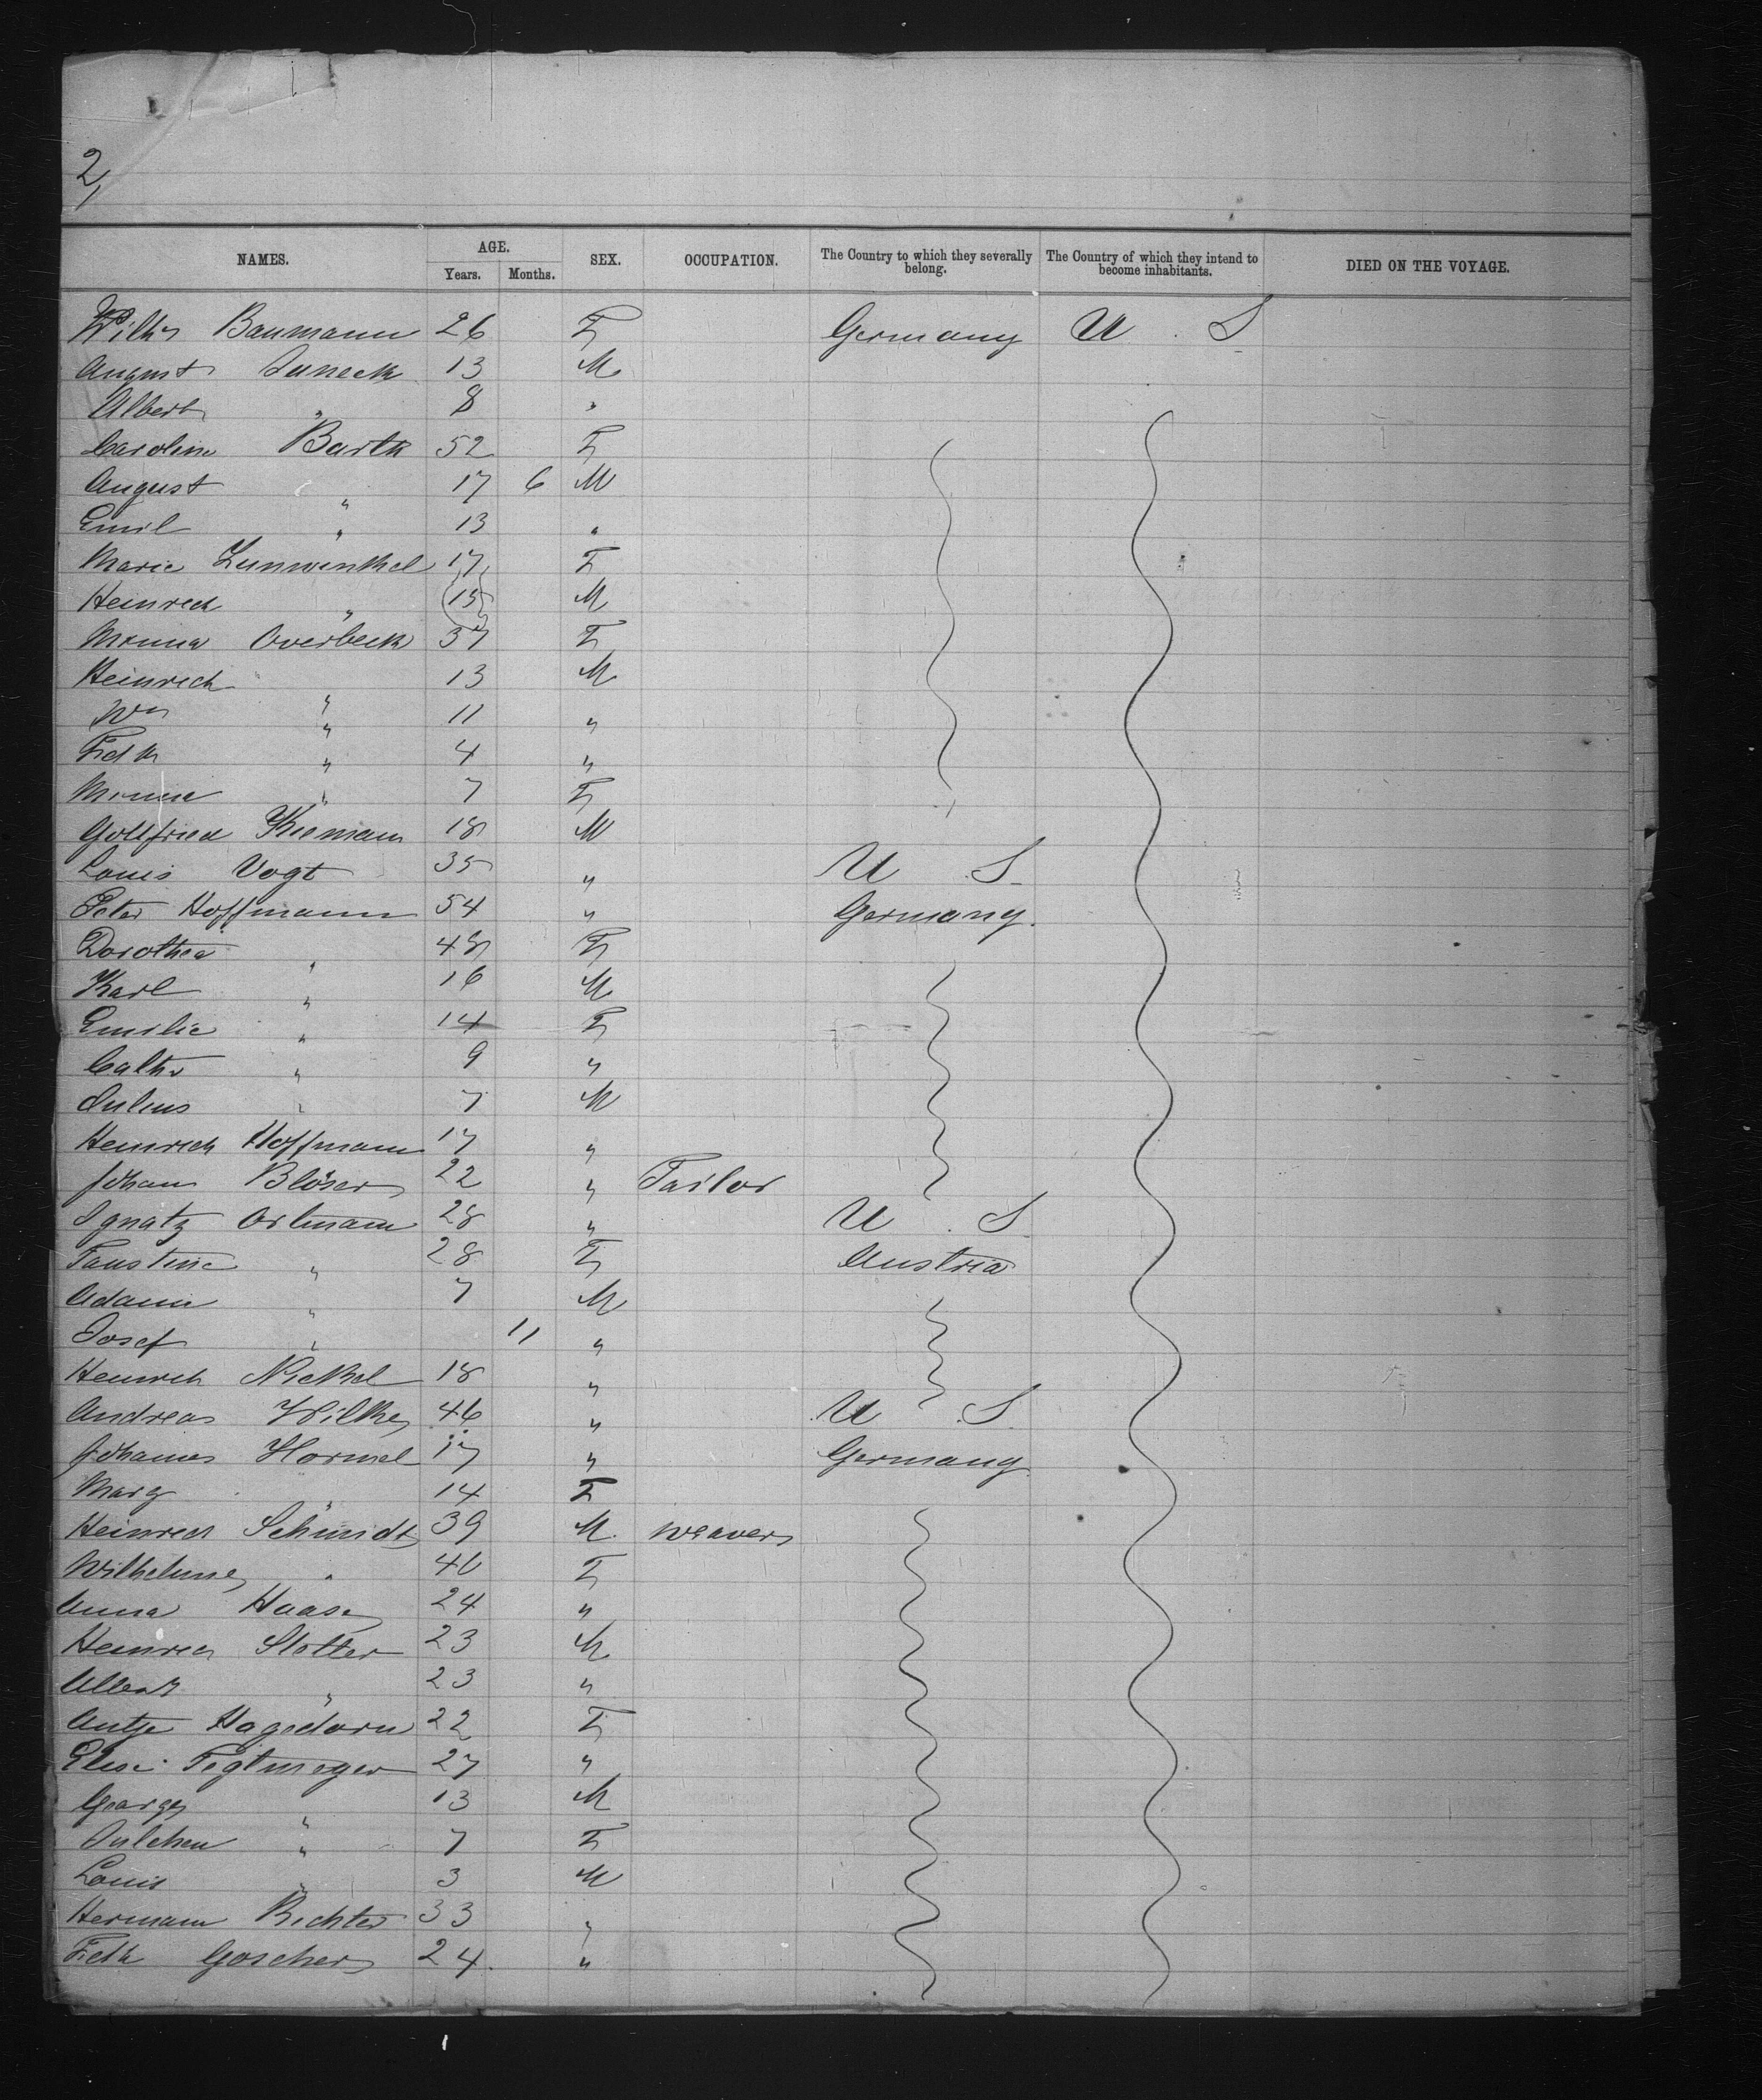 2,
NAMES. AGE. Years. Months. SEX. OCCUPATION. The Country to which they severally belong. The Country of which they intend to become inhabitants. DIED ON THE VOYAGE.
Baumann 26 F Germany U . S
August Janeck 13 M
Albert " 8 "
Caroline Barth 52 F
August " 17 6 M
Emil " 13 "
Marie Zumwinkel 17 F
Heinrich " 15 M
Minna Overbeck 37 F
Heinrich " 13 M
Wm " 11 "
Fidk " 4 "
Minna " 7 F
Gottfried 18 M
Louis Vogt 35 " U S
Peter Hoffmann 54 " Germany.
Dorothea " 48 F
Karl " 16 M
Emilie " 14 F
" 9 "
Julius " 7 M
Heinrich Hoffmann 17 "
Johann Blöser 22 " Tailor
Ignatz Ortmann 28 " U . S
Faustine " 28 F Austria
Adam " 7 M
Josef " 11 "
Heinrich Nickel 18 "
Andreas Wilke 46 " U S
Johannes Hormel 17 " Germany
Marg " 14 F
Heinrich Schmidt 39 M weaver
Wilhelmine " 40 F
Anna Haase 24 "
Heinrich Stotter 23 M
Albert " 23 "
Antje Hagedorn 22 F
Elise 27 "
George " 13 M
Julchen " 7 F
Louis " 3 M
Hermann Richter 33 "
Fidk Goscher 24. "